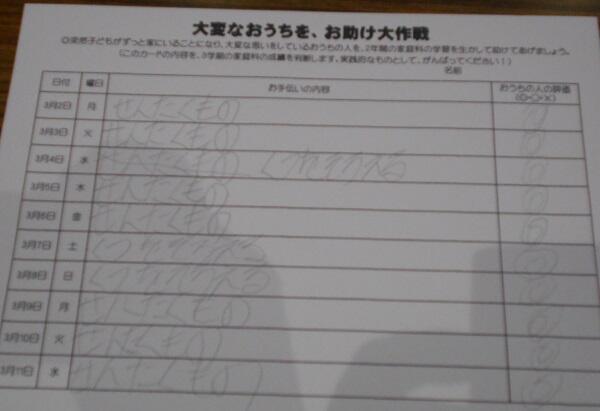 大変なおうちを、お助け大作戦
◎突然子どもがずっと家にいることになり、大変な思いをしているおうちの人を、2年間の家庭科の学習を生かして助けてあげましょう。
（このカードの内容を、3学期の家庭科の成績を判断します。実践的なものとして、がんばってください！）
名前
日付 曜日 お手伝いの内容 おうちの人の評価（◎・○・×）
3月2日 月 せんたくもの ◎
3月3日 火 せんたくもの ◎
3月4日 水 せんたくもの くつをそろえる ◎
3月5日 木 せんたくもの ◎
3月6日 金 せんたくもの ◎
3月7日 土 くつをそろえる ◎
3月8日 日 くつをそろえる ◎
3月9日 月 せんたくもの ◎
3月10日 火 せんたくもの ◎
3月11日 水 せんたくもの ◎